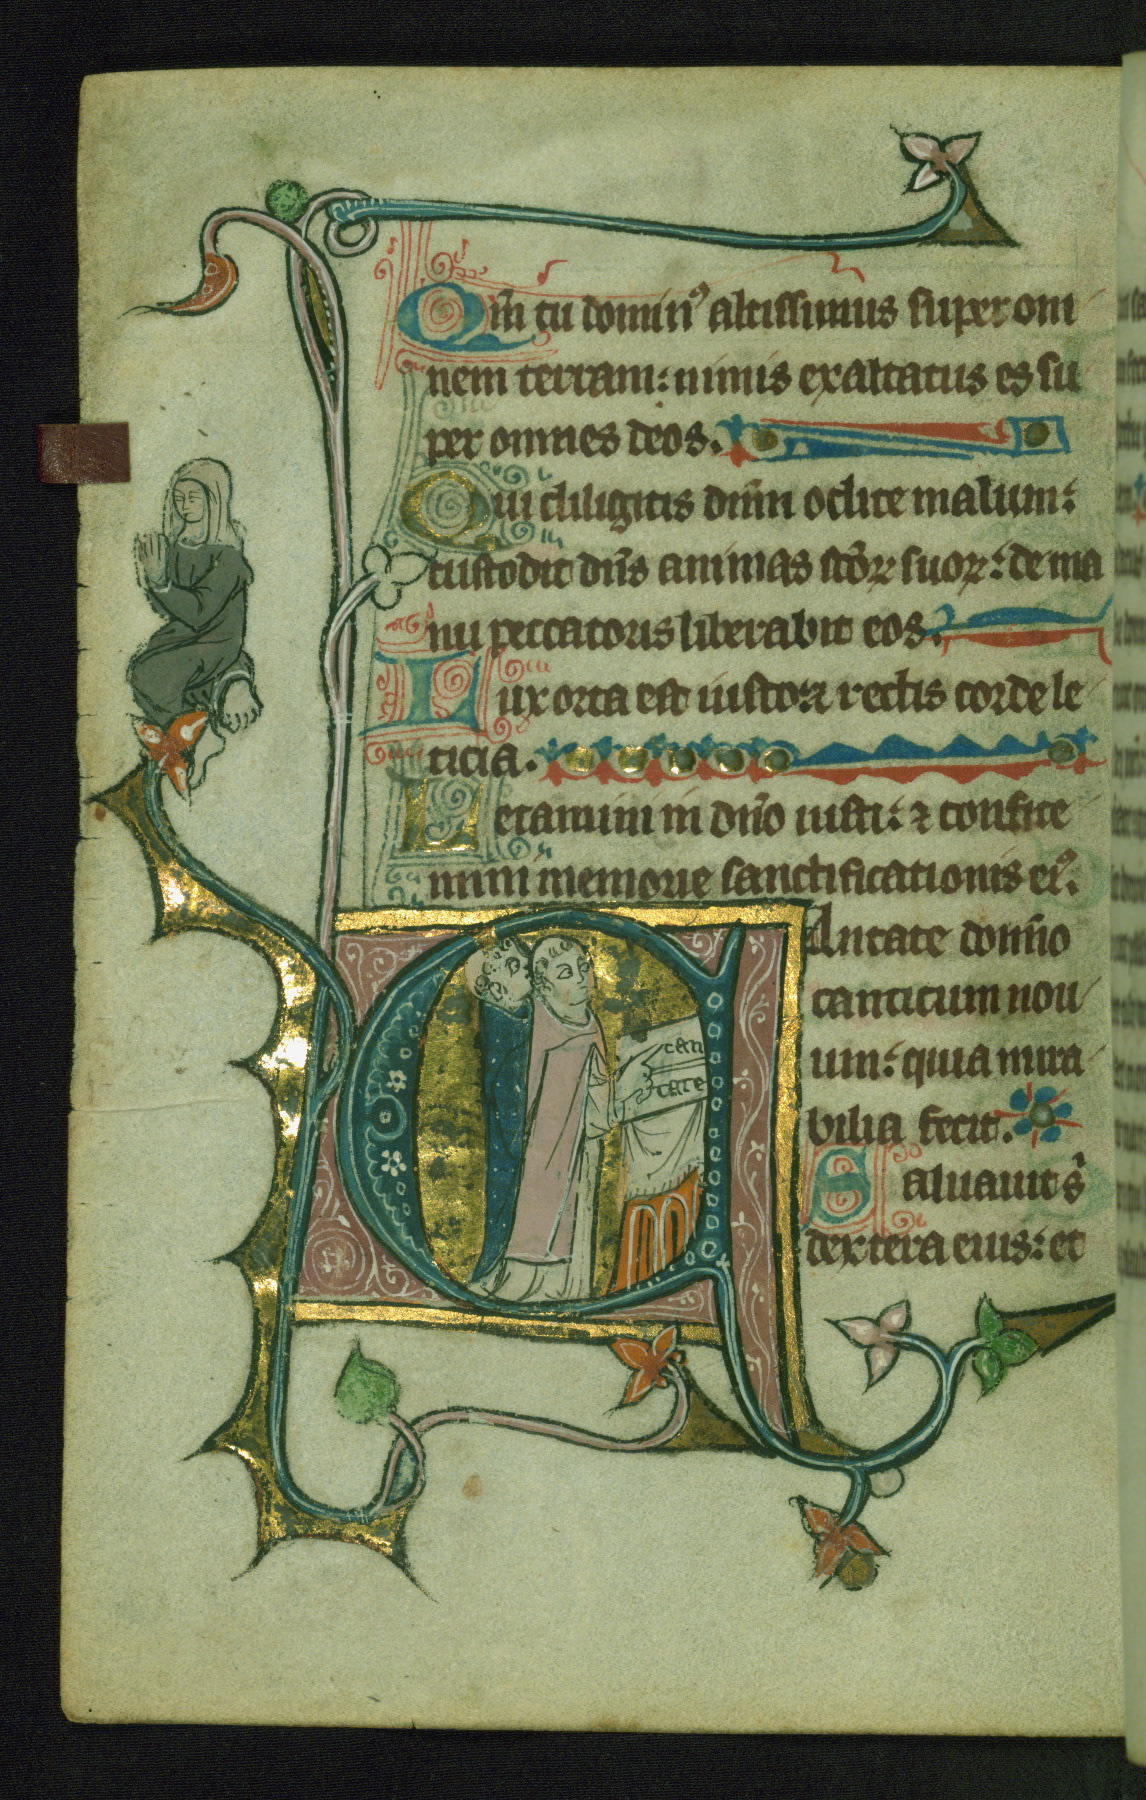 Qm̄ tu domin⁹ altissimus super om
nem terram: nimis exaltatus es su
per omnes deos.
Qui diligitis dn̄m odite malum:
custodit dn̄s animas sc̄oꝝ suoꝝ: de ma
nu peccatoris liberabit eos.
Lux orta est iusto: ⁊ rectis corde le
ticia.
Letamini in dn̄o iusti: ⁊ confite
mini memorie sanctificationis ei⁹.
Cantate domino
canticum nou
um: quia mira
bilia fecit.
can
tate
Saluauit s̄
dextera eius: et